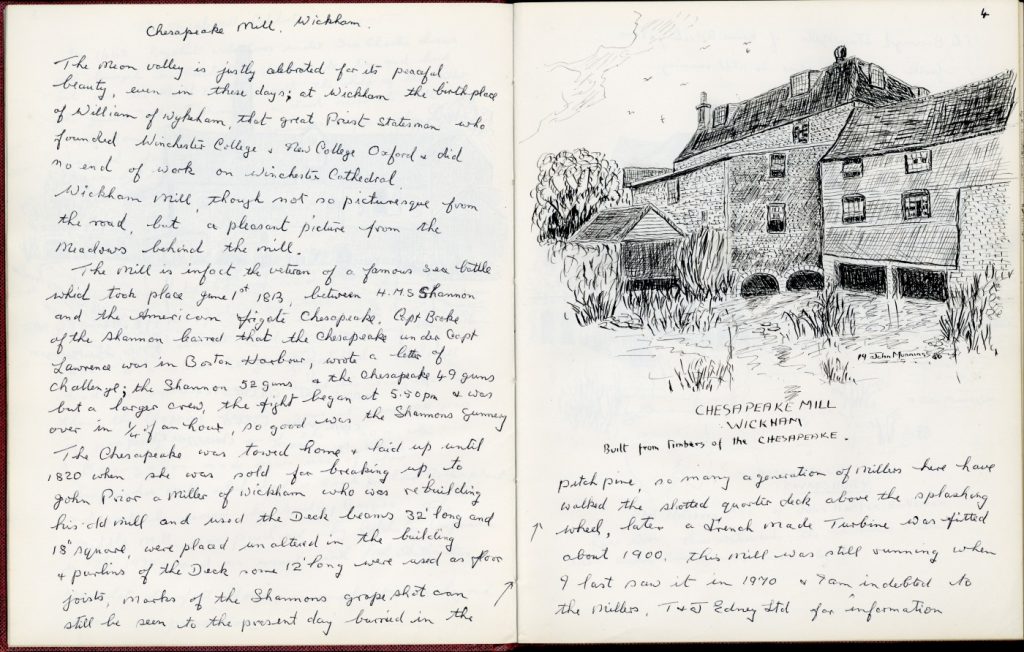 Chesapeake Mill, Wickham.
The Meon valley is justly celebrated for its peaceful
beauty, even in these days; at Wickham the birthplace
of William of Wykeham, that great Priest Statesman who
founded Winchester College & New College Oxford & did
no end of work on Winchester Cathedral.
Wickham Mill, though not so picturesque from
the road, but a pleasant picture from the
Meadows behind the mill.
The Mill is infact the veteran of a famous sea battle
which took place June 1st 1813, between H.M.S Shannon
and the American frigate Chesapeake. Capt Broke
of the Shannon that the Chesapeake under Capt
Lawrence was in Boston Harbour, wrote a letter of
challenge; the Shannon 52 guns & the Chesapeake 49 guns
but a larger crew, the fight began at 5.50pm & was
over in 1/4 of an hour, so good was the Shannons gunnery
The Chesapeake was towed home & laid up until
1820 when she was sold for breaking up, to
John Prior a Miller of Wickham who was rebuilding
his old mill and used the Deck beams 32' long and
18" square, were placed unaltered in the building
& purlins of the Deck some 12' long were used as floor
joists, Marks of the Shannons grape shot can
still be seen to the present day burried in the
4
19 John Munnings 86
CHESAPEAKE MILL
WICKHAM
Built from Timbers of the CHESAPEAKE.
pitch pine, so many a generation of Millers here have
walked the slotted quarter deck above the splashing
wheel, later a French made Turbine was fitted
about 1900. this Mill was still running when
I last saw it in 1970 & I am indebted to
the Millers, T & J Edney Ltd for information